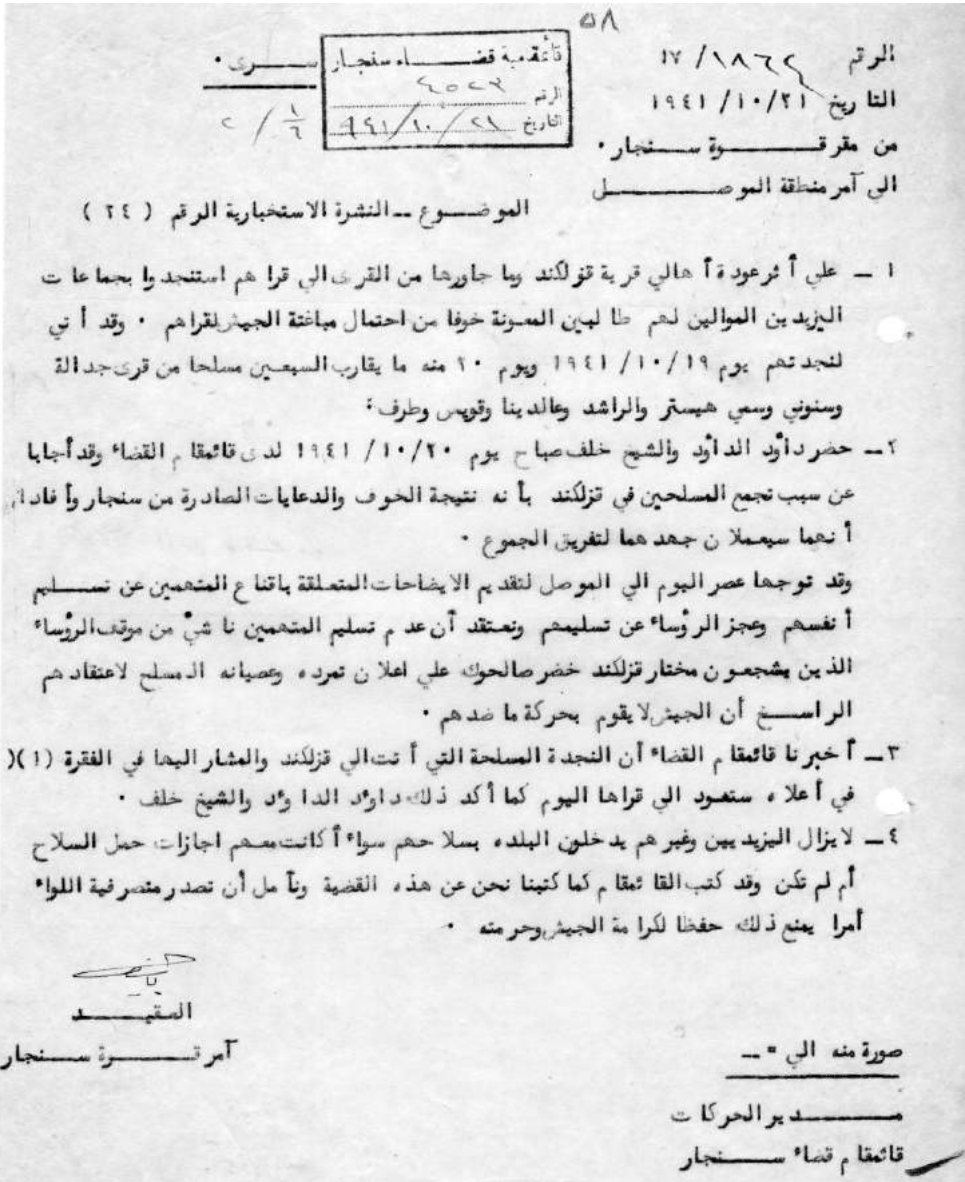 ٥٨
الرقم ١٨٦٢/ ١٧
التاريخ ١٩٤١/١٠/٢١
من مقر قـــوة ســـنجار ٠
الى آمر منطقة الموصـــل
قائمقامية قضـــاء سنجار
الرقم ٤٥٢٣
التاريخ ٢١/ ١٠/ ٩٤١
ســـرى ٠
الموضـــوع ــ النشرة الاستخبارية الرقم ( ٢٤ )
١ ــ على أثر عودة أهالي قرية قزلكند وما جاورها من القرى الى قراهم استنجدوا بجماعات
اليزيدين الموالين لهم طالبين المعونة خوفا من احتمال مباغتة الجيش لقراهم ٠ وقد أتي
لنجدتهم يوم ١٩٤١/١٠/١٩ ويوم ٢٠ منه ما يقارب السبعين مسلحا من قرى جدالة
وسنوني وسمي هيستر والراشد وعالدينا وقويس وطرف ؛
٢ــ حضر داؤد الداؤد والشيخ خلف صباح يوم ١٩٤١/١٠/٢٠ لدى قائمقام القضاء وقد أجابا
عن سبب تجمع المسلحين في قزلكند بأنه نتيجة الخوف والدعايات الصادرة من سنجار وأفادا
أنهما سيعملان جهدهما لتفريق الجموع ٠
وقد توجها عصر اليوم الى الموصل لتقديم الايضاحات المتعلقة باقناع المتهمين عن تســـليم
أنفسهم وعجز الرؤساء عن تسليمهم ونعتقد أن عدم تسليم المتهمين ناشئ من موقف الرؤساء
الذين يشجعون مختار قزلكند خضر صالحوك على اعلان تمرده وعصيانه المسلح لاعتقادهم
الراســـخ أن الجيش لا يقوم بحركة ما ضدهم ٠
٣ــ أخبرنا قائمقام القضاء أن النجدة المسلحة التي أتت الى قزلكند والمشار اليها في الفقرة (١)(
في أعلاه ستعود الى قراها اليوم كما أكد ذلك داوئد الداوئد والشيخ خلف ٠
٤ــ لا يزال اليزيديين وغيرهم يدخلون البلده بسلاحهم سواء أكانت معهم اجازات حمل السلاح
أم لم تكن وقد كتب القائمقام كما كتبنا نحن عن هذه القضية ونأمل أن تصدر متصرفية اللواء
أمرا يمنع ذلك حفظا لكرامة الجيش وحرمته ٠
العقيـــد
آمر قـــوة ســـنجار
صورة منه الى ــ
مـــدير الحركات
قائمقام قضاء ســـنجار